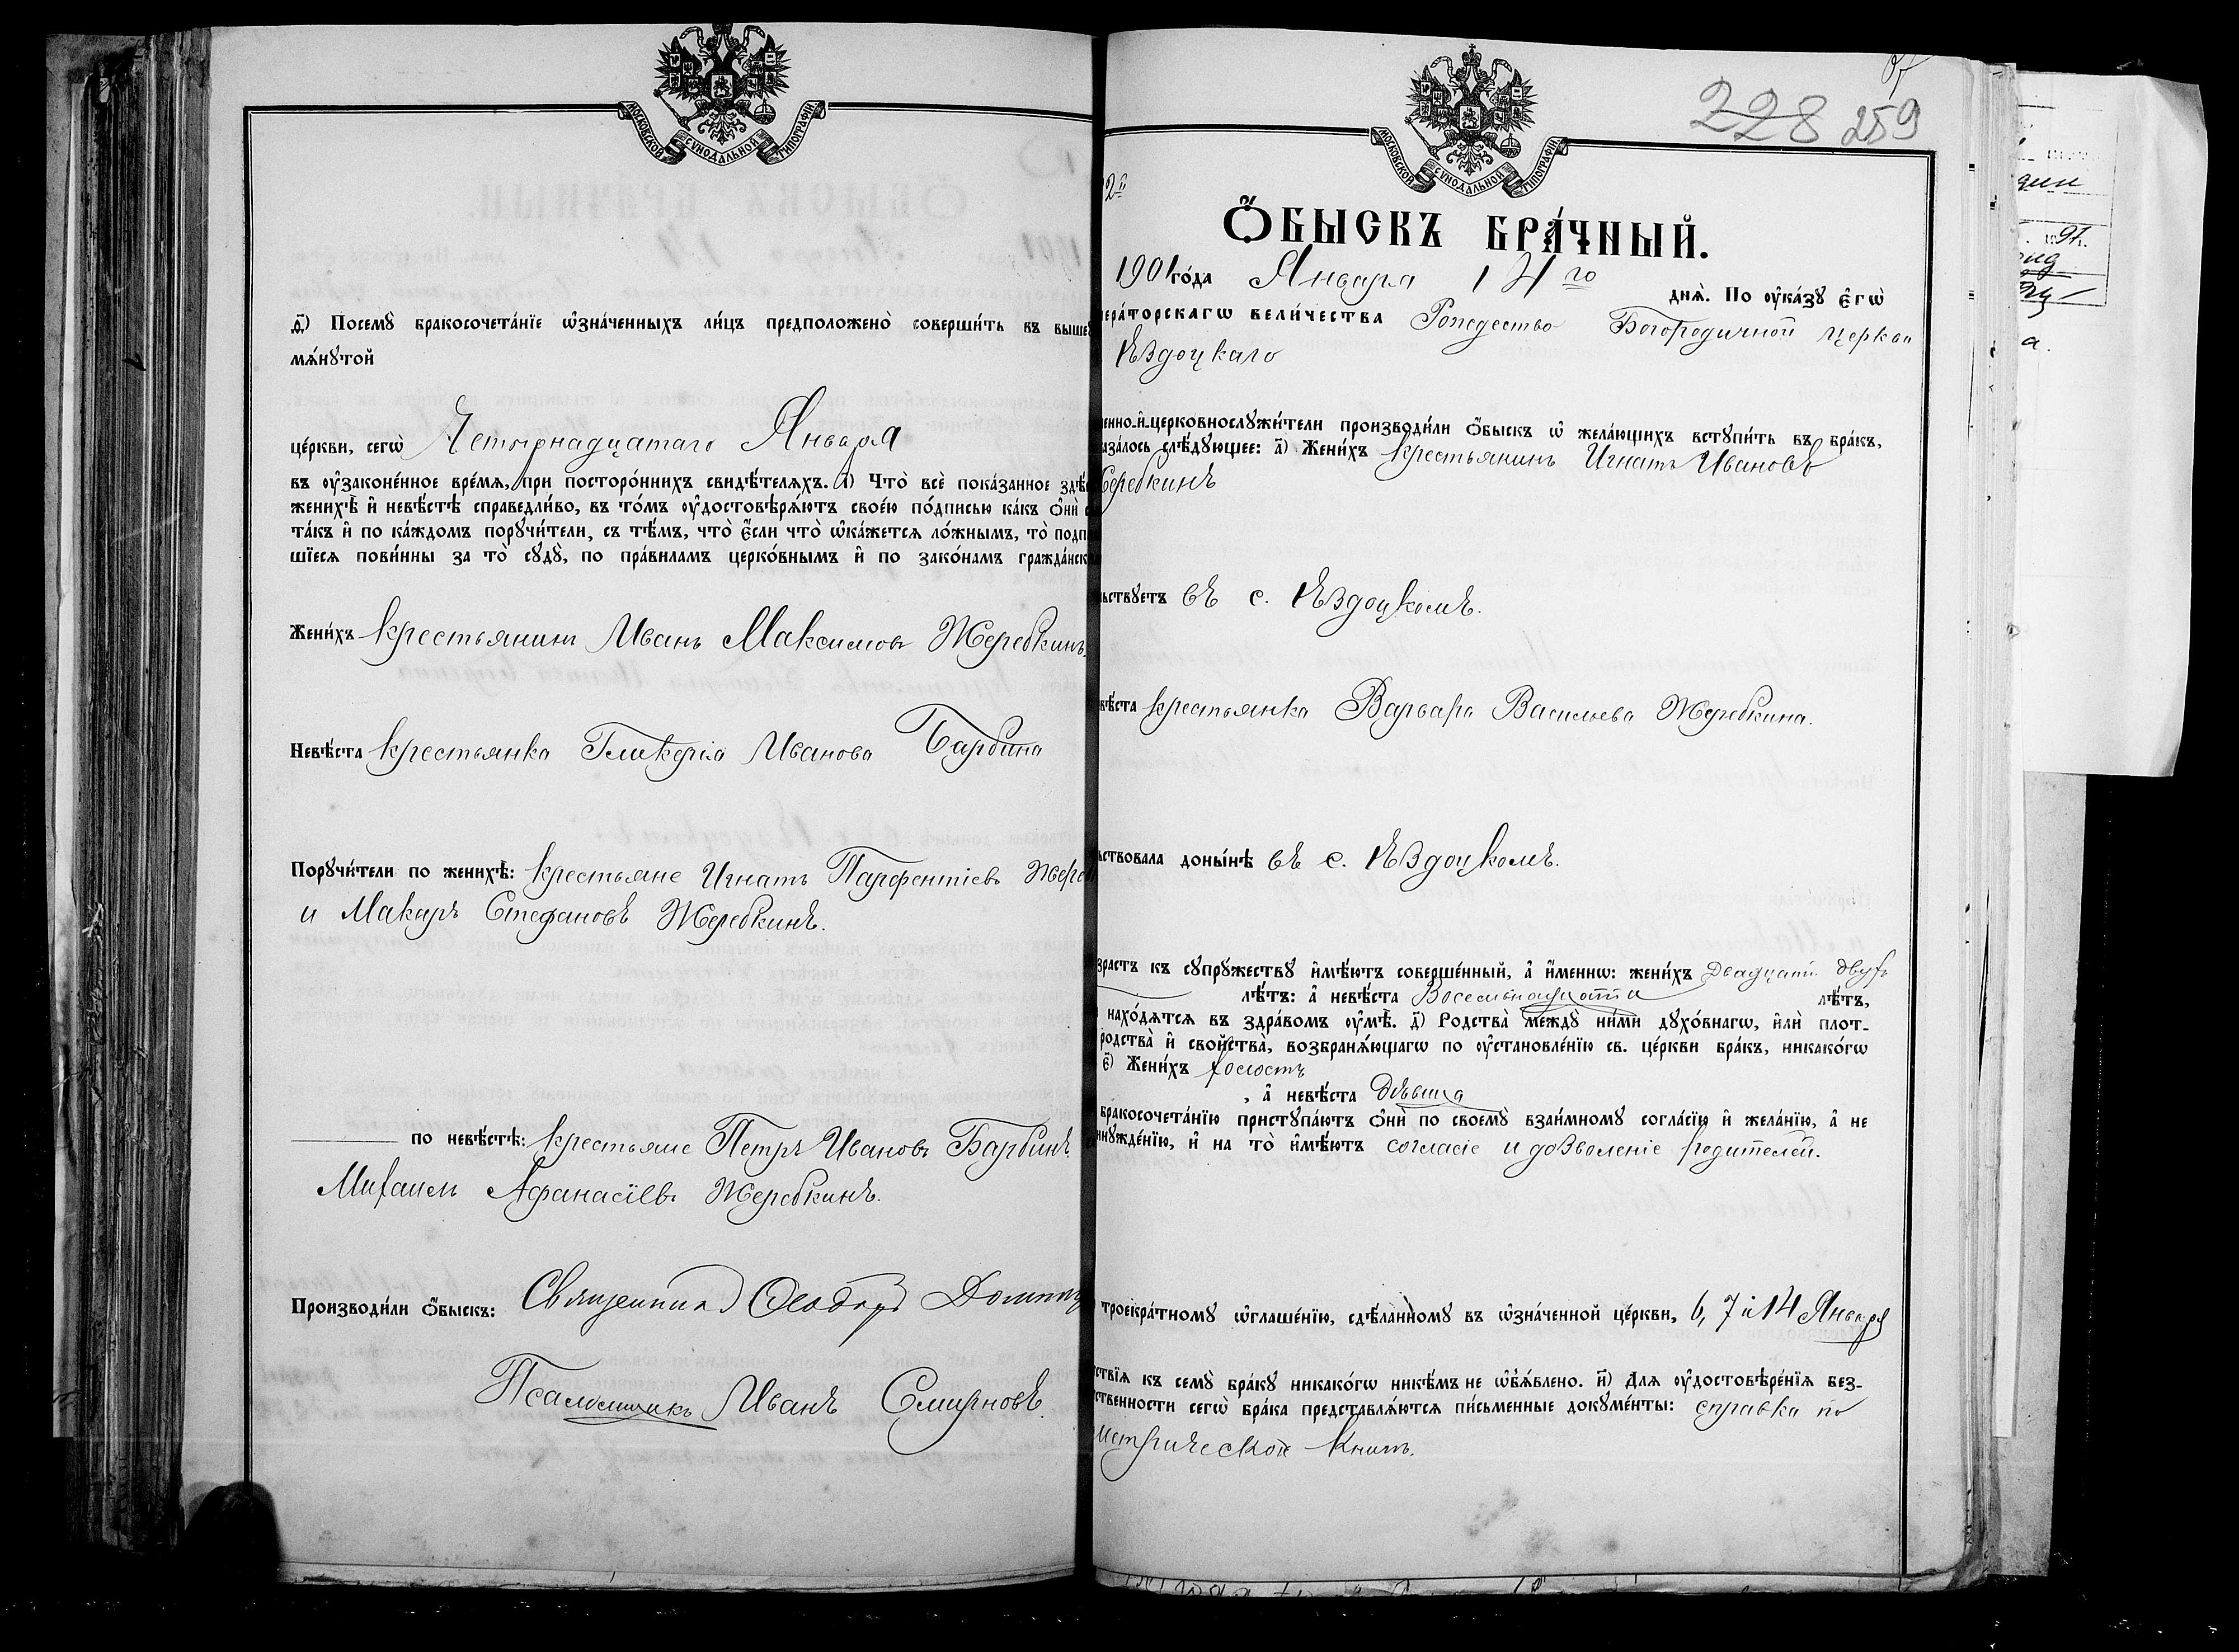 МОСКОВСКОЙ СѴНОДАЛЬНОЙ ТИПОГРАФІИ
ѳ҃) Посемꙋ̀ бракосочета́нїе ѡ҆зна́ченныхъ ли́цъ предположено̀ соверши́ть въ выше
мѧ́нꙋтой
це́ркви, сегѡ̀ Четырнадцатаго Января
въ ᲂу҆законе́нное вре́мѧ, при посторо́ннихъ свидѣ́телѧхъ. і҃) Что̀ всѐ пока́занное здѣ
женихѣ̀ и҆ невѣ́стѣ справедли́во, въ то́мъ ᲂу҆достовѣрѧ́ютъ свое́ю по́дписью ка́къ ѻ҆нѝ
та́къ и҆ по ка́ждомъ порꙋчи́тели, съ тѣ́мъ, что̀ є҆́сли что̀ ѡ҆ка́жетсѧ ло́жнымъ, то̀ подп
шїесѧ пови́нны за то̀ сꙋдꙋ̀, по пра́виламъ церко́внымъ и҆ по зако́намъ гражда́нск
Жени́хъ крестьянинъ Иванъ Максимовъ Жеребкинъ.
Невѣ́ста крестьянка Гликерія Иванова Барбина
Порꙋчи́тели по женихѣ̀: крестьяне Игнатъ Парфентіевъ Жере
и Макаръ Стефановъ Жеребкинъ.
по невѣ́стѣ: крестьяне Петръ Ивановъ Барбинъ
Михаилъ Афанасіевъ Жеребкинъ.
Производи́ли ѻ҆́быскъ: Священникъ Ѳеодоръ
Псаломщикъ Иванъ Смирновъ.
МОСКОВСКОЙ СѴНОДАЛЬНОЙ ТИПОГРАФІИ
228 259
2й
Ѻ҆́БЫСКЪ БРА́ЧНЫЙ.
1901 го́да Января 14го днѧ̀. По ᲂу҆ка́зꙋ є҆гѡ̀
ера́торскагѡ вели́чества Рождество Богородичной церкви
Ѣздоцкаго
енно-и҆-церковнослꙋжи́тели производи́ли ѻ҆́быскъ ѡ҆ жела́ющихъ встꙋпи́ть въ бра́къ,
аза́лось слѣ́дꙋющее: а҃) Жени́хъ крестьянинъ Игнатъ Ивановъ
еребкинъ
ьствꙋетъ въ с. Ѣздоцкомъ.
вѣ́ста крестьянка Варвара Васильева Жеребкина.
ьствовала доны́нѣ въ с. Ѣздоцкомъ.
зрастъ къ сꙋпрꙋ́жествꙋ и҆мѣ́ютъ соверше́нный, а҆ и҆́меннѡ: жени́хъ двадцати двухъ
лѣ́тъ: а҆ невѣ́ста Восемьнадцати лѣ́тъ,
нахо́дѧтсѧ въ здра́вомъ ᲂу҆мѣ̀. д҃) Родства̀ междꙋ̀ ни́ми дꙋхо́внагѡ, и҆лѝ плот-
родства̀ и҆ сво́йства̀, возбранѧ́ющагѡ по ᲂу҆становле́нїю св. це́ркви бра́къ, никако́гѡ
є҃) Жени́хъ холостъ
, а҆ невѣ́ста дѣвица
бракосочета́нїю пристꙋпа́ютъ ѻ҆нѝ по своемꙋ̀ взаи́мномꙋ согла́сїю и҆ жела́нїю, а҆ не
нꙋжде́нїю, и҆ на то̀ и҆мѣ́ютъ согласіе и дозволеніе родителей.
троекра́тномꙋ ѡ҆глаше́нїю, сдѣ́ланномꙋ въ ѡ҆зна́ченной це́ркви, 6, 7 и 14 Января
ствїѧ къ семꙋ̀ бра́кꙋ никако́гѡ никѣ́мъ не ѡ҆б̾ѧ́влено. и҃) Длѧ ᲂу҆достовѣре́нїѧ без-
ственности сегѡ̀ бра́ка представлѧ́ютсѧ пи́сьменные докꙋме́нты: справка по
метрической книгѣ.